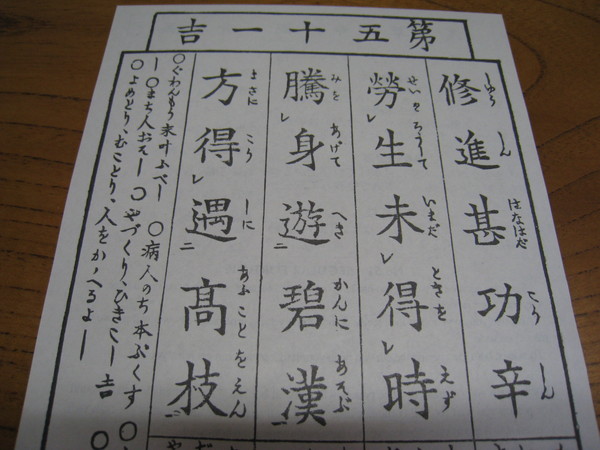 第五十一吉
修進甚功辛
しゆう しん はなはだ こう しん
勞生未得時
せい を ろうして いまだ ときを えず
騰身遊碧漢
みを あげて へきかんに あそぶ
方得遇高枝
まさに こう しに あふことをえん
○ぐわんもう末叶ふべし ○病人のち本ぷくす
○まち人おそし ○やづくり、ひきこし 吉
○よめとり、むことり、人をかゝへるよし